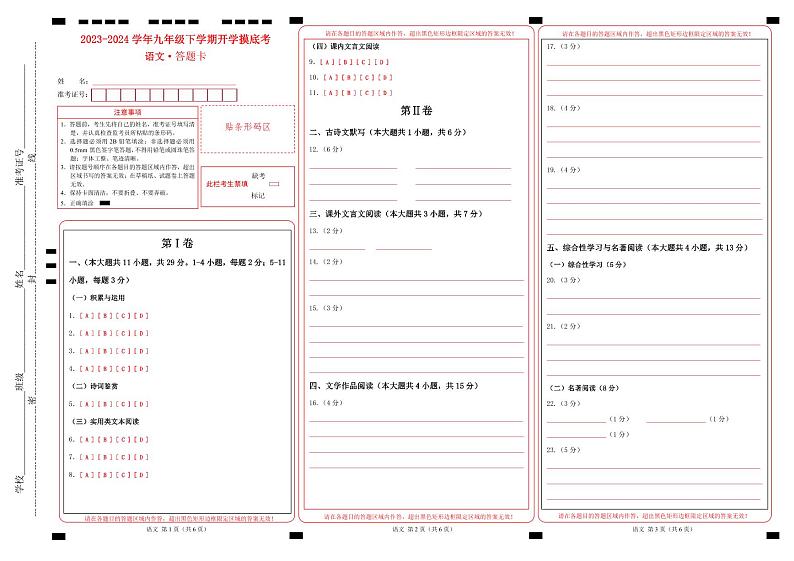 学校
班级
姓名
准考证号
密
封
线
2023-2024 学年九年级下学期开学摸底考
语文·答题卡
姓 名:
准考证号:
注意事项
1.答题前,考生先将自己的姓名,准考证号填写清
楚,并认真检查监考员所粘贴的条形码。
2.选择题必须用 2B 铅笔填涂;非选择题必须用
0.5mm 黑色签字笔答题,不得用铅笔或圆珠笔答
题;字体工整、笔迹清晰。
3.请按题号顺序在各题目的答题区域内作答,超出
区域书写的答案无效;在草稿纸、试题卷上答题
无效。
4.保持卡面清洁,不要折叠、不要弄破。
5.正确填涂
贴条形码区
此栏考生禁填
缺考
标记
第Ⅰ卷
一、(本大题共 11 小题,共 29 分。1-4 小题,每题 2 分;5-11
小题,每题 3 分)
(一)积累与运用
1.[A][B][C][D]
2.[A][B][C][D]
3.[A][B][C][D]
4.[A][B][C][D]
(二)诗词鉴赏
5.[A][B][C][D]
(三)实用类文本阅读
6.[A][B][C][D]
7.[A][B][C][D]
8.[A][B][C][D]
请在各题目的答题区域内作答,超出黑色矩形边框限定区域的答案无效!
语文 第 1 页(共 6 页)
请在各题目的答题区域内作答,超出黑色矩形边框限定区域的答案无效!
(四)课内文言文阅读
9.[A][B][C][D]
10.[A][B][C][D]
11.[A][B][C][D]
第Ⅱ卷
二、古诗文默写(本大题共 1 小题,共 6 分)
12.(6 分)
三、课外文言文阅读(本大题共 3 小题,共 7 分)
13.(2 分)
14.(2 分)
15.(3 分)
四、文学作品阅读(本大题共 4 小题,共 15 分)
16.(4 分)
请在各题目的答题区域内作答,超出黑色矩形边框限定区域的答案无效!
语文 第 2 页(共 6 页)
请在各题目的答题区域内作答,超出黑色矩形边框限定区域的答案无效!
17.(3 分)
18.(4 分)
19.(4 分)
五、综合性学习与名著阅读(本大题共 4 小题,共 13 分)
(一)综合性学习(5 分)
20.(3 分)
21.(2 分)
(二)名著阅读(8 分)
22.(3 分)
(1 分) (1 分)
(1 分)
23.(5 分)
请在各题目的答题区域内作答,超出黑色矩形边框限定区域的答案无效!
语文 第 3 页(共 6 页)